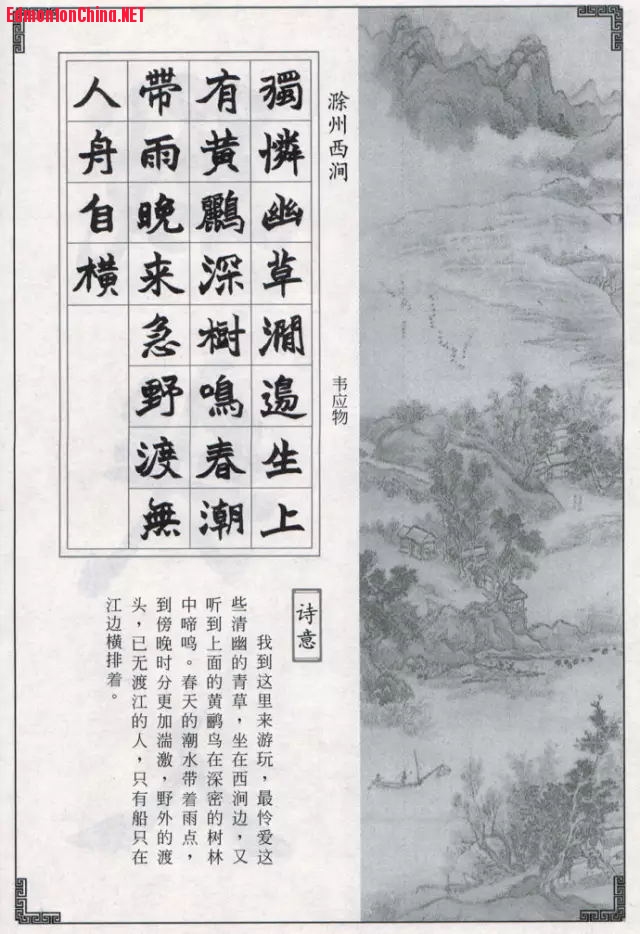 EdmontonChina.NET
滁州西涧
韦应物
獨憐幽草澗邊生上
有黄鸝深樹鳴春潮
帶雨晚来急野渡無
人舟自橫
诗意
我到这里来游玩，最怜爱这
些清幽的青草，坐在西涧边，又
听到上面的黄鹂鸟在深密的树林
中啼鸣。春天的潮水带着雨点，
到傍晚时分更加湍激，野外的渡
头，已无渡江的人，只有船只在
江边横排着。